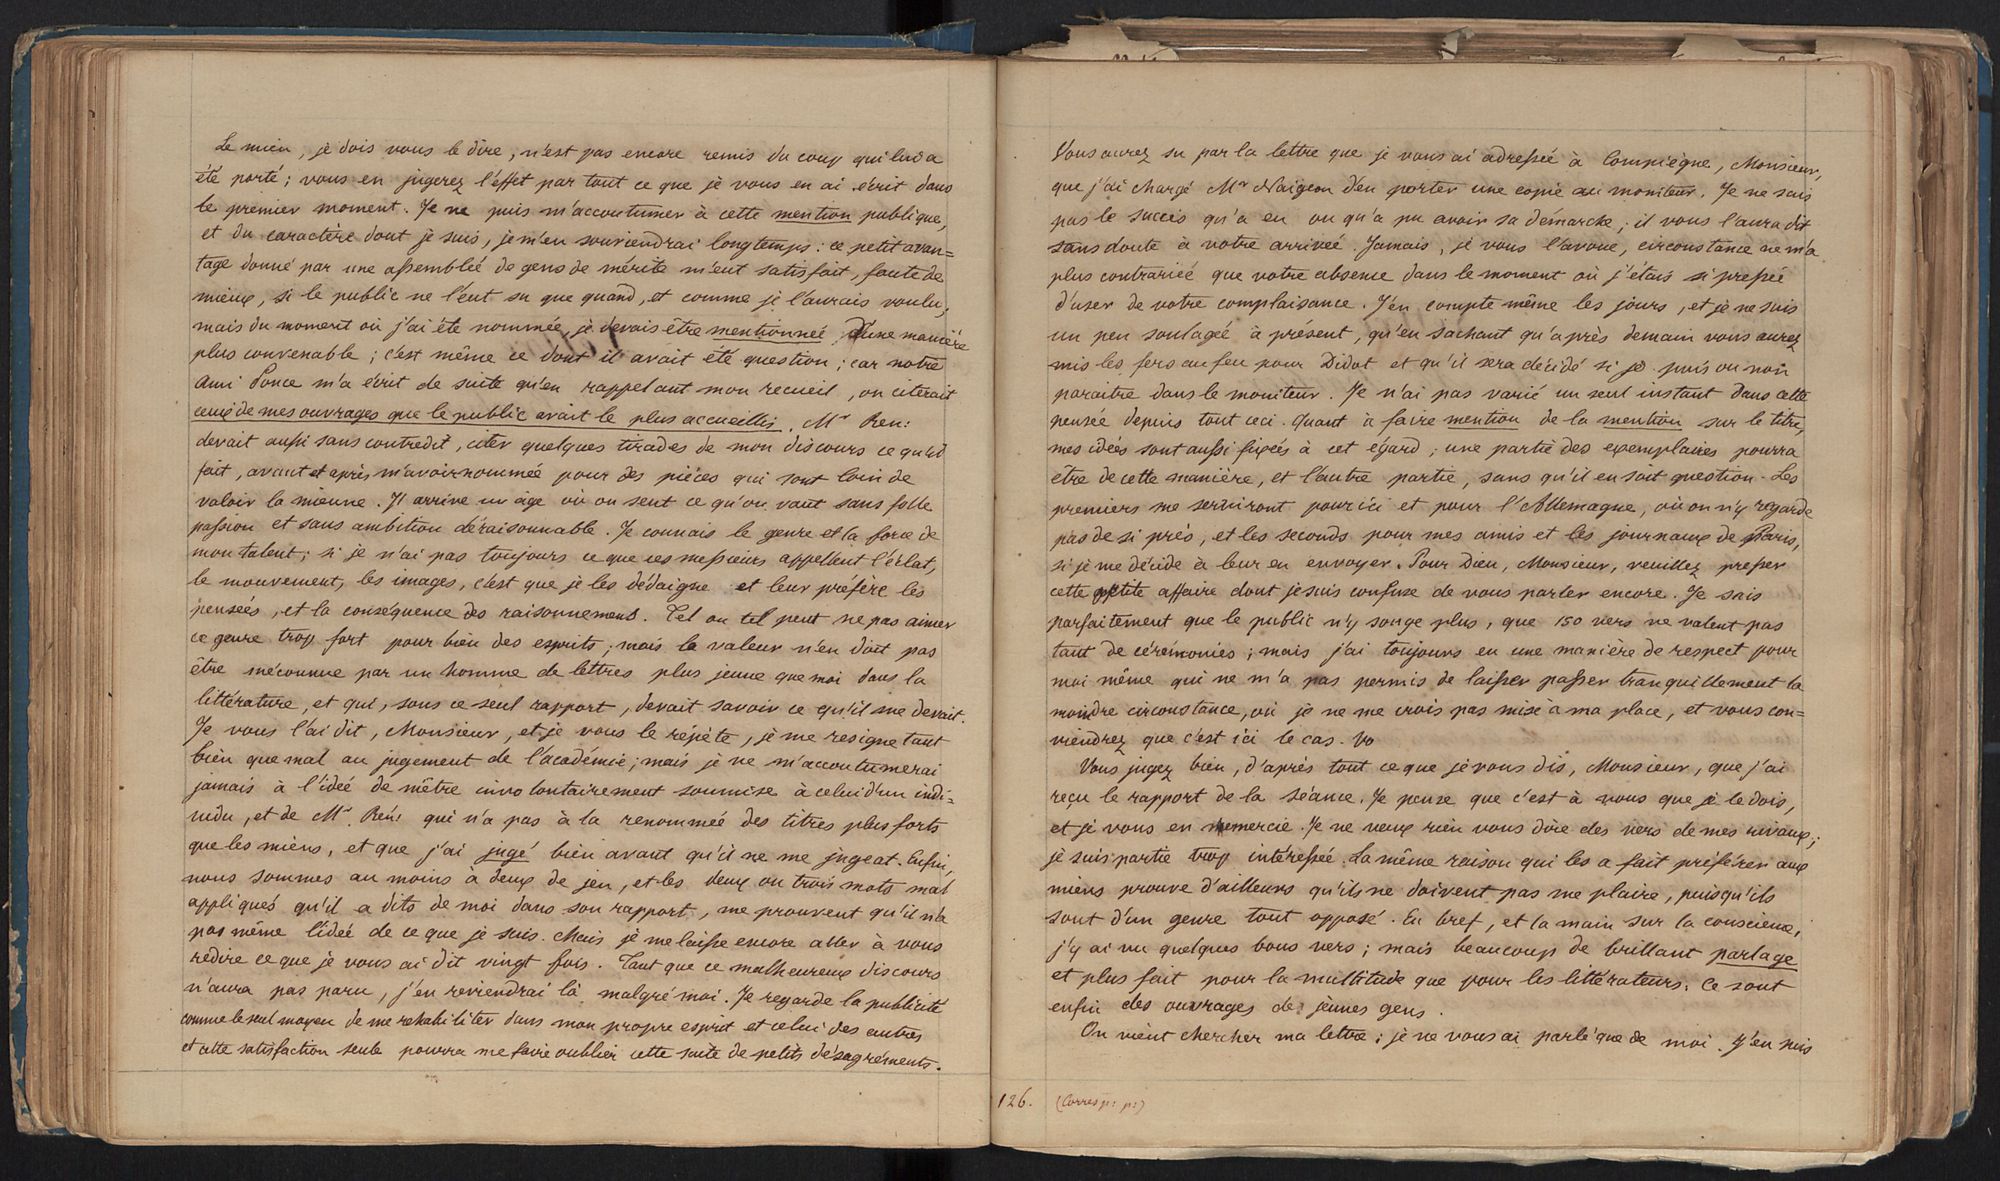 Le mien, je dois vous le dire, n'est pas encore remis du coup qui lui a
été porté; vous en jugerez l'effet par tout ce que je vous en ai écrit dans
le premier moment. Je ne puis m'accoutumer à cette mention publique,
et du caractère dont je suis, je m'en souviendrai longtemps: ce petit avan=
tage donné par une assemblée de gens de mérite m'eut satisfait, faute de
mieux, si le public ne l'eut su que quand, et comme je l'aurais voulu,
mais du moment où j'ai été nommée, je devais être mentionnée d'une manière
plus convenable; c'est même ce dont il avait été question; car notre
ami Ponce m'a écrit de suite qu'en rappelant mon recueil, on citerait
ceux de mes ouvrages que le public avait le plus accueillis. Mr Ren:
devait aussi sans contredit, citer quelques tirades de mon discours ce qu'il
fait, avant et après m'avoir nommée pour des pièces qui sont loin de
valoir la mienne. Il arrive un âge où on sent ce qu'on vaut sans folle
passion et sans ambition déraisonnable. Je connais le genre et la force de
mon talent; si je n'ai pas toujours ce que ces messieurs appellent l'éclat,
le mouvement, les images, c'est que je les dédaigne et leur préfère les
pensées, et la conséquence des raisonnements. Tel ou tel peut ne pas aimer
ce genre trop fort pour bien des esprits; mais la valeur n'en doit pas
être méconnue par un homme de lettres plus jeune que moi dans la
littérature, et qui, sous ce seul rapport, devait savoir ce qu'il me devait.
Je vous l'ai dit, Monsieur, et je vous le répète, je me resigne tant
bien que mal au jugement de l'académie; mais je ne m'accoutumerai
jamais à l'idée de m'être involontairement soumise à celui d'un indi=
vidu, et de Mr. Rén: qui n'a pas à la renommée des titres plus forts
que les miens, et que j'ai jugé bien avant qu'il ne me jugeat. Enfin,
nous sommes au moins à deux de jeu, et les deux ou trois mots mal
appliqués qu'il a dits de moi dans son rapport, me prouvent qu'il n'a
pas même l'idée de ce que je suis. Mais je me laisse encore aller à vous
redire ce que je vous ai dit vingt fois. Tant que ce malheureux discours
n'aura pas paru, j'en reviendrai là malgré moi. Je regarde la publicité
comme le seul moyen de me rehabiliter dans mon propre esprit et celui des autres
et cette satisfaction seule pourra me faire oublier cette suite de petits désagréments.
Vous aurez su par la lettre que je vous ai adressée à Compiègne, Monsieur,
que j'ai chargé Mr Naigeon d'en porter une copie au moniteur. Je ne sais
pas le succès qu'a eu ou qu'a pu avoir sa démarche; il vous l'aura dit
sans doute à votre arrivée. Jamais, je vous l'avoue, circonstance ne m'a
plus contrariée que votre absence dans le moment où j'étais si pressée
d'user de votre complaisance. J'en compte même les jours, et je ne suis
un peu soulagée à présent, qu'en sachant qu'après demain vous aurez
mis les fers au feu pour Didot et qu'il sera décidé si je puis ou non
paraitre dans le moniteur. Je n'ai pas varié un seul instant dans cette
pensée depuis tout ceci. Quant à faire mention de la mention sur le titre,
mes idées sont aussi fixées à cet égard; une partie des exemplaires pourra
être de cette manière, et l'autre partie, sans qu'il en soit question. Les
premiers me serviront pour ici et pour l'Allemagne, où on n'y regarde
pas de si près, et les seconds pour mes amis et les journaux de Paris,
si je me décide à leur en envoyer. Pour Dieu, Monsieur, veuillez presser
cette petite affaire dont je suis confuse de vous parler encore. Je sais
parfaitement que le public n'y songe plus, que 150 vers ne valent pas
tant de cérémonies; mais j'ai toujours eu une manière de respect pour
moi même qui ne m'a pas permis de laisser passer tranquillement la
moindre circonstance, où je ne me crois pas mise à ma place, et vous con=
viendrez que c'est ici le cas. Vo
Vous jugez bien, d'après tout ce que je vous dis, Monsieur, que j'ai
reçu le rapport de la séance. Je pense que c'est à vous que je le dois,
et je vous en remercie. Je ne veux rien vous dire des vers de mes rivaux;
je suis partie trop intéressée. La même raison qui les a fait préférer aux
miens prouve d'ailleurs qu'ils ne doivent pas me plaire, puisqu'ils
sont d'un genre tout opposé. En bref, et la main sur la conscience,
j'y ai vu quelques bons vers; mais beaucoup de brillant parlage
et plus fait pour la multitude que pour les littérateurs. Ce sont
enfin des ouvrages de jeunes gens.
On vient chercher ma lettre; je ne vous ai parlé que de moi. J'en suis
126. (Corresp: p:)